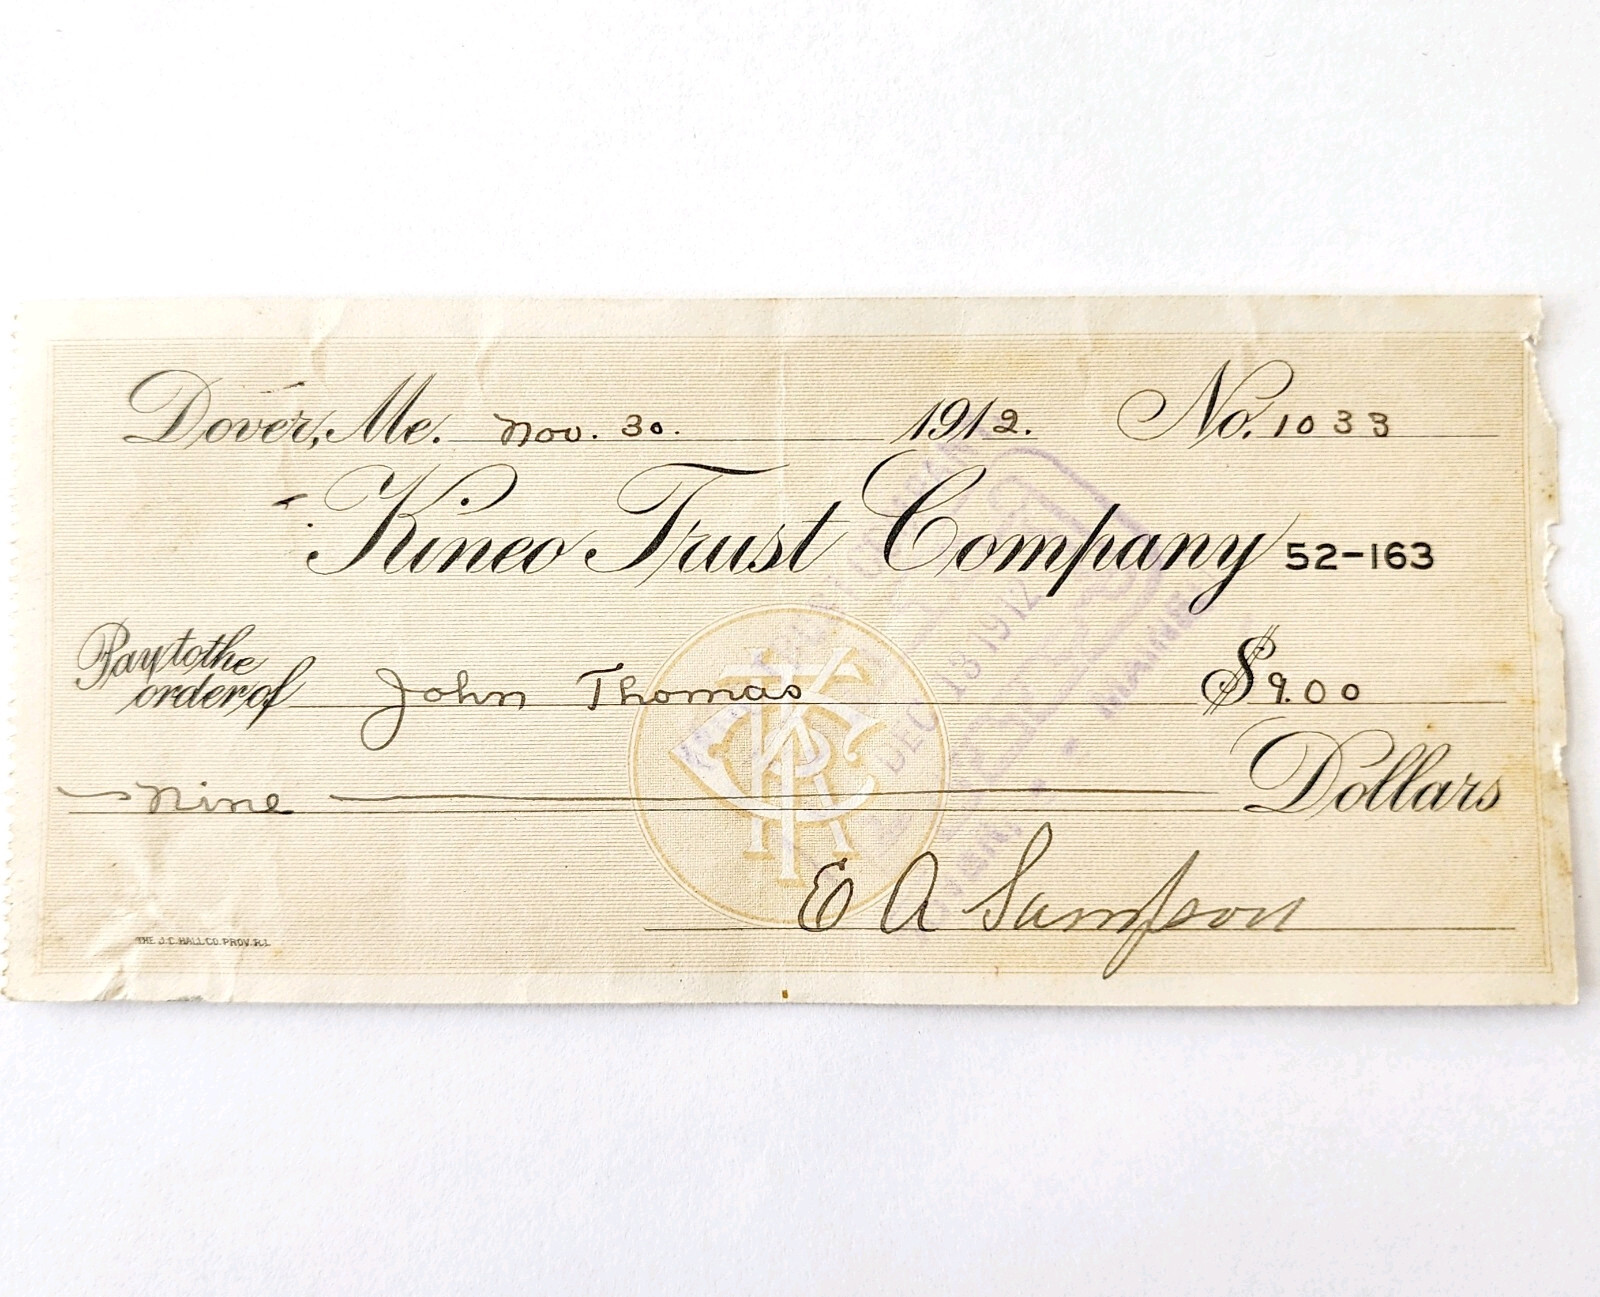 Dover, Me. Nov. 30. 1912. No. 1033
Kineo Trust Company 52-163
Pay to the
order of John Thomas $9.00
Nine Dollars
E A Sampson
THE J.C. HALL CO. PROV. R.I.
DEC 13 1912
MAINE